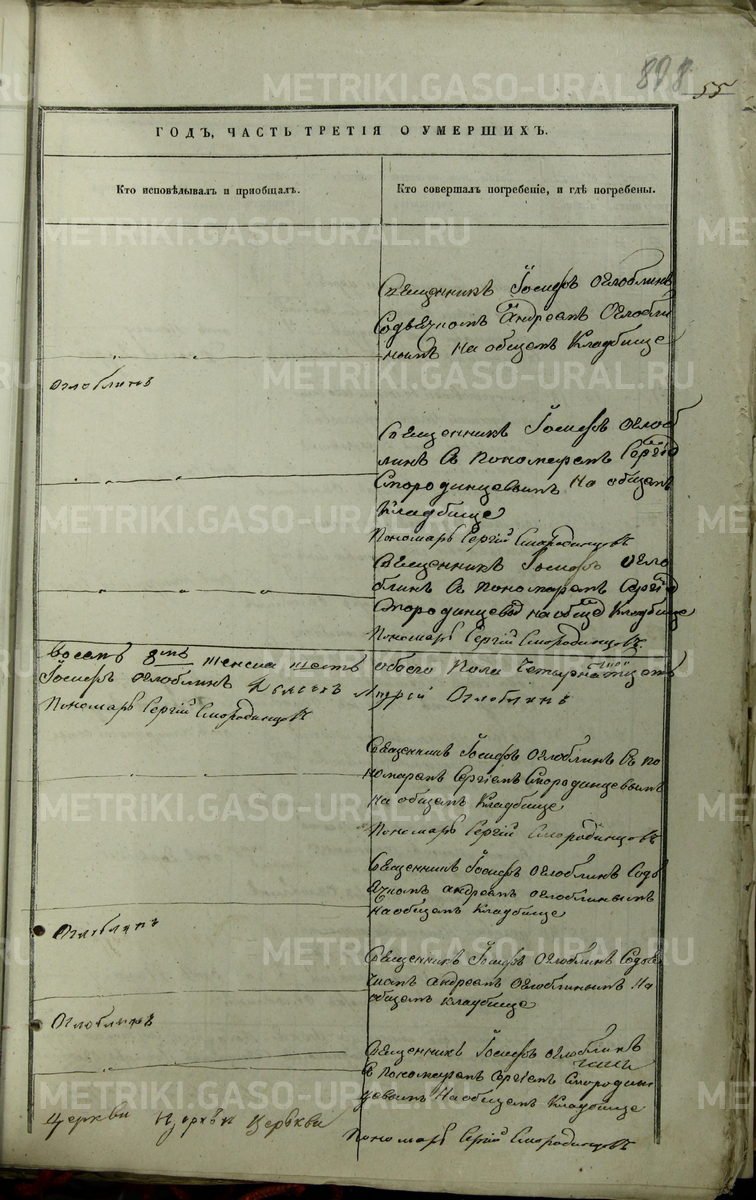 898
55
ГОДЪ, ЧАСТЬ ТРЕТІЯ О УМЕРШИХЪ.
Кто исповѣдывалъ и пріобщалъ.
Кто совершалъ погребеніе, и гдѣ погребены.
Священникъ Іосифъ Оглоблинъ
Содьячкомъ Андреемъ Оглобли
нымъ на общемъ Кладбище
Оглоблинъ
Священникъ Іосифъ Оглоб
линъ Съ пономаремъ Сергіем
Смородинцевымъ на общемъ
Кладбище
Пономарь Сергій Смородинцовъ
Священникъ Іосифъ Огло
блинъ Съ пономаремъ Сергіем
Смородинцевым на общем Кладбище
Пономарь Сергій Смородинцовъ
восемь 8мь женска шесть обоего пола четырнатцать
Іосифъ Оглоблинъ Дьячекъ Андрей Оглоблинъ
Пономарь Сергій Смородинцовъ
Священникъ Іосифъ Оглоблинъ Съ по
номаремъ Сергіемъ Смородинцевымъ
на общемъ Кладбище
Пономарь Сергій Смородинцовъ
Священникъ Іосифъ Оглоблинъ Содь
ячкомъ андреемъ оглоблинымъ
на общемъ Кладбище
Оглоблинъ
Священникъ Іосифъ Оглоблинъ Содья
чкомъ андреемъ Оглоблинымъ На
общемъ кладбище
Оглоблинъ
Священникъ Іосифъ Оглоблинъ
Съ пономаремъ Сергіемъ Смородин
цевымъ На общемъ Кладбище
Церкви Церкви Церькви
Пономарь Сергій Смородинцовъ
METRIKI.GASO-URAL.RU